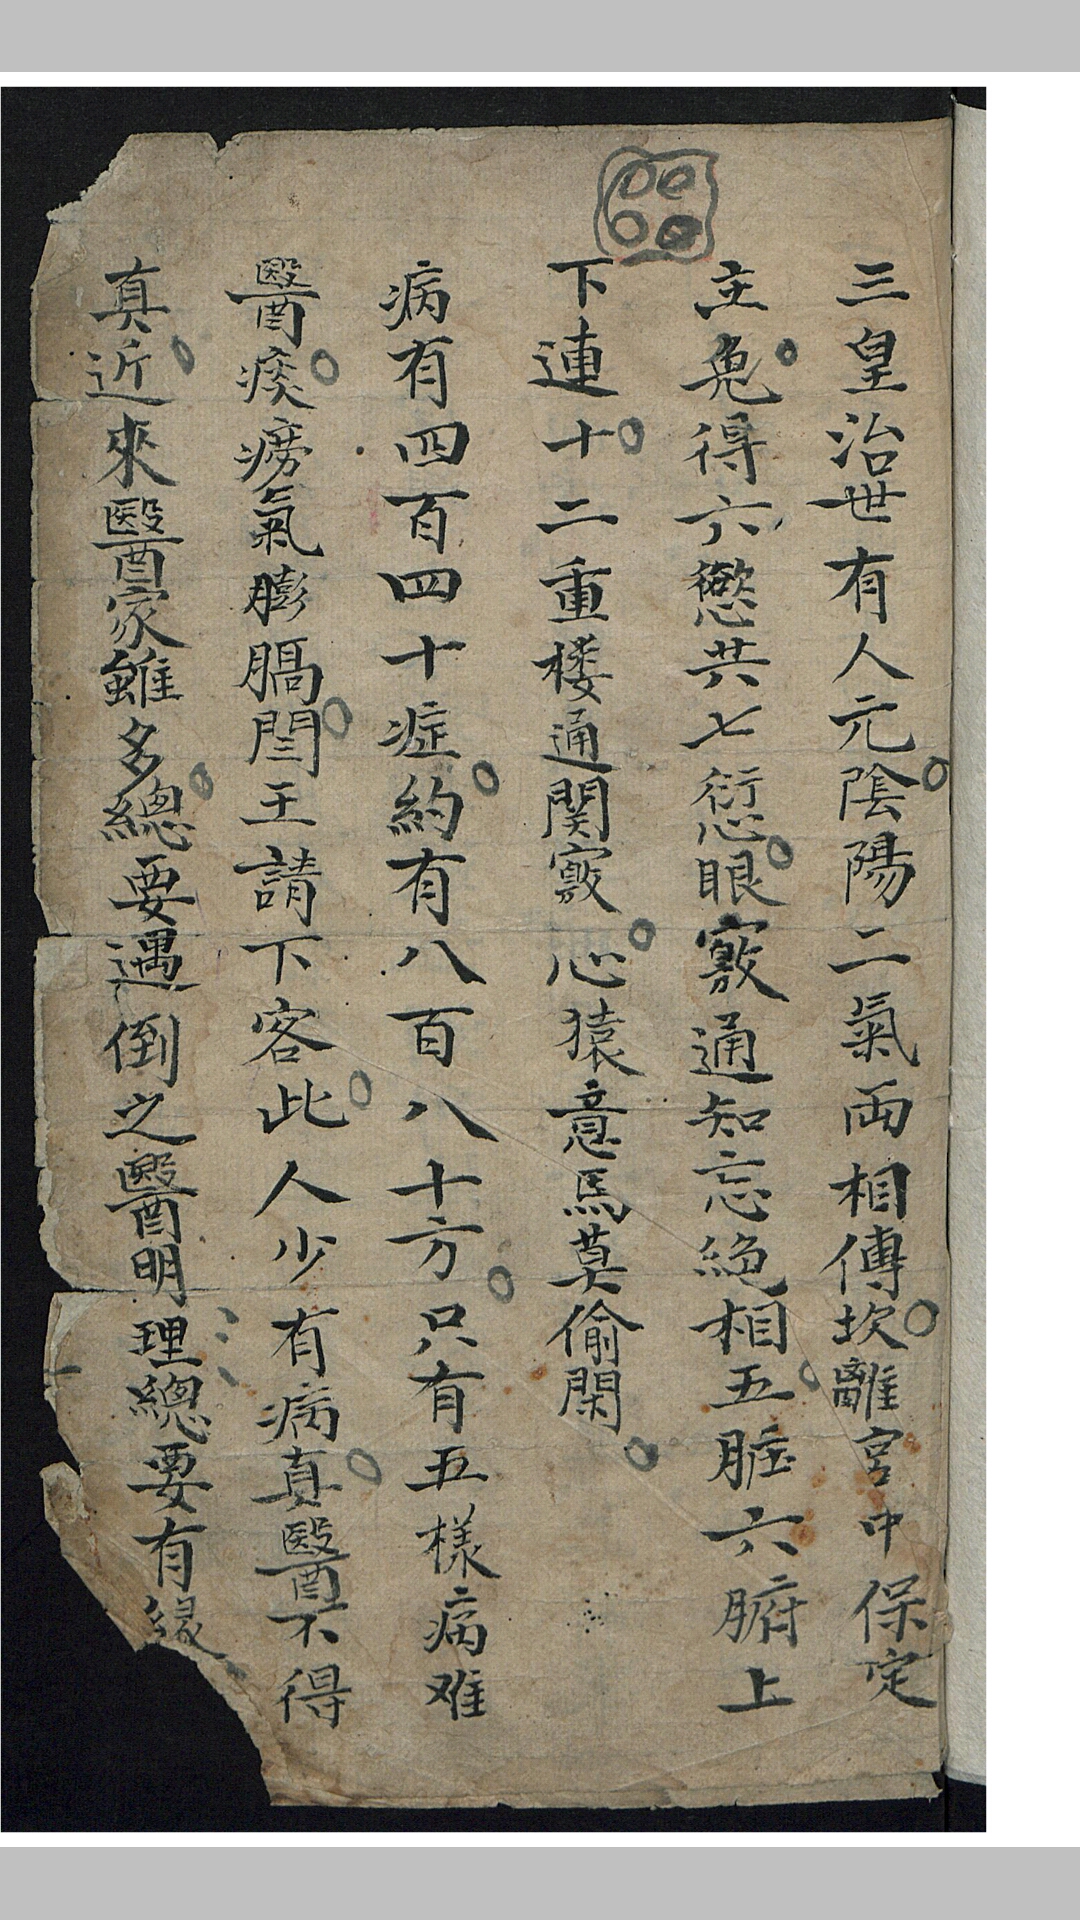 三皇治世有人元陰陽二氣両相傳坎離宮中保定
主兔得六慾共七衍慾眼竅通知忘絶相五脏六腑上
下連十二重楼通関竅心猿意馬莫偷閑
病有四百四十症約有八百八十方只有五樣病难
醫痰癆氣膨膈閆王請下客此人少有病真醫不得
真近來醫家雖多總要遇倒之醫明理總要有緣